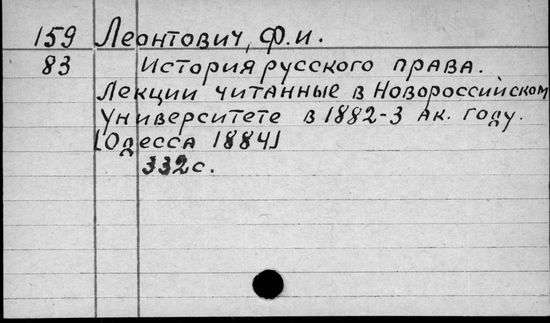 159 Леонтович, Ф.и.
83 История русского права.
Лекции читанные в Новороссийском
Университете в 1882-3 ак. году.
[Одесса 1884]
332с.